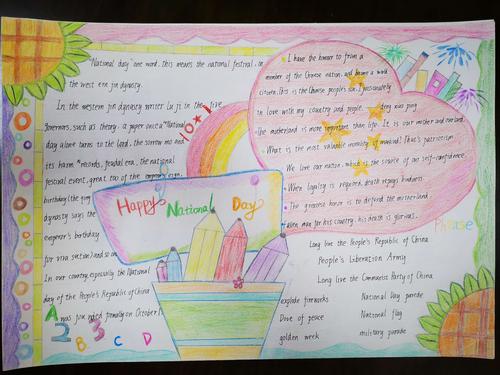 "National day" one word, this means the national festival, on
the west ern jin dynasty.
In the western jin dynasty writer lu ji in the five
Governors, such as theory, a paper once a "National
day alone turns to the lord, the sorrow mo and
tes harm" records, feudal era, the national
festival event, great too of the
birthday(the qing
dynasty says the
emperor's birthday
for and so on
In our country, especially the National
day of the People's Republic of China
was founded formally on October 1
10★1
Happy National Day
I have the honour to from a
member of the Chinese nation, and became a word
citizen. This is the Chinese people's son. I passionately
in love with my country and people. deng xiao ping
The motherland is more important than life. It is our mother and our land.
What is the most valuable morality of mankind? That's patriotism
We love our nation, which is the source of our self-confidence.
When loyalty is required, death repays kindness.
The greatest honor is to defend the motherland
man for his country, his death is glorious.
Phrase
Long live the People's Republic of China
People's Liberation Army
Long live the Communist Party of China
explode fireworks National Day parade
Dove of peace National flag
golden week military parade
A
2 B 3 C D